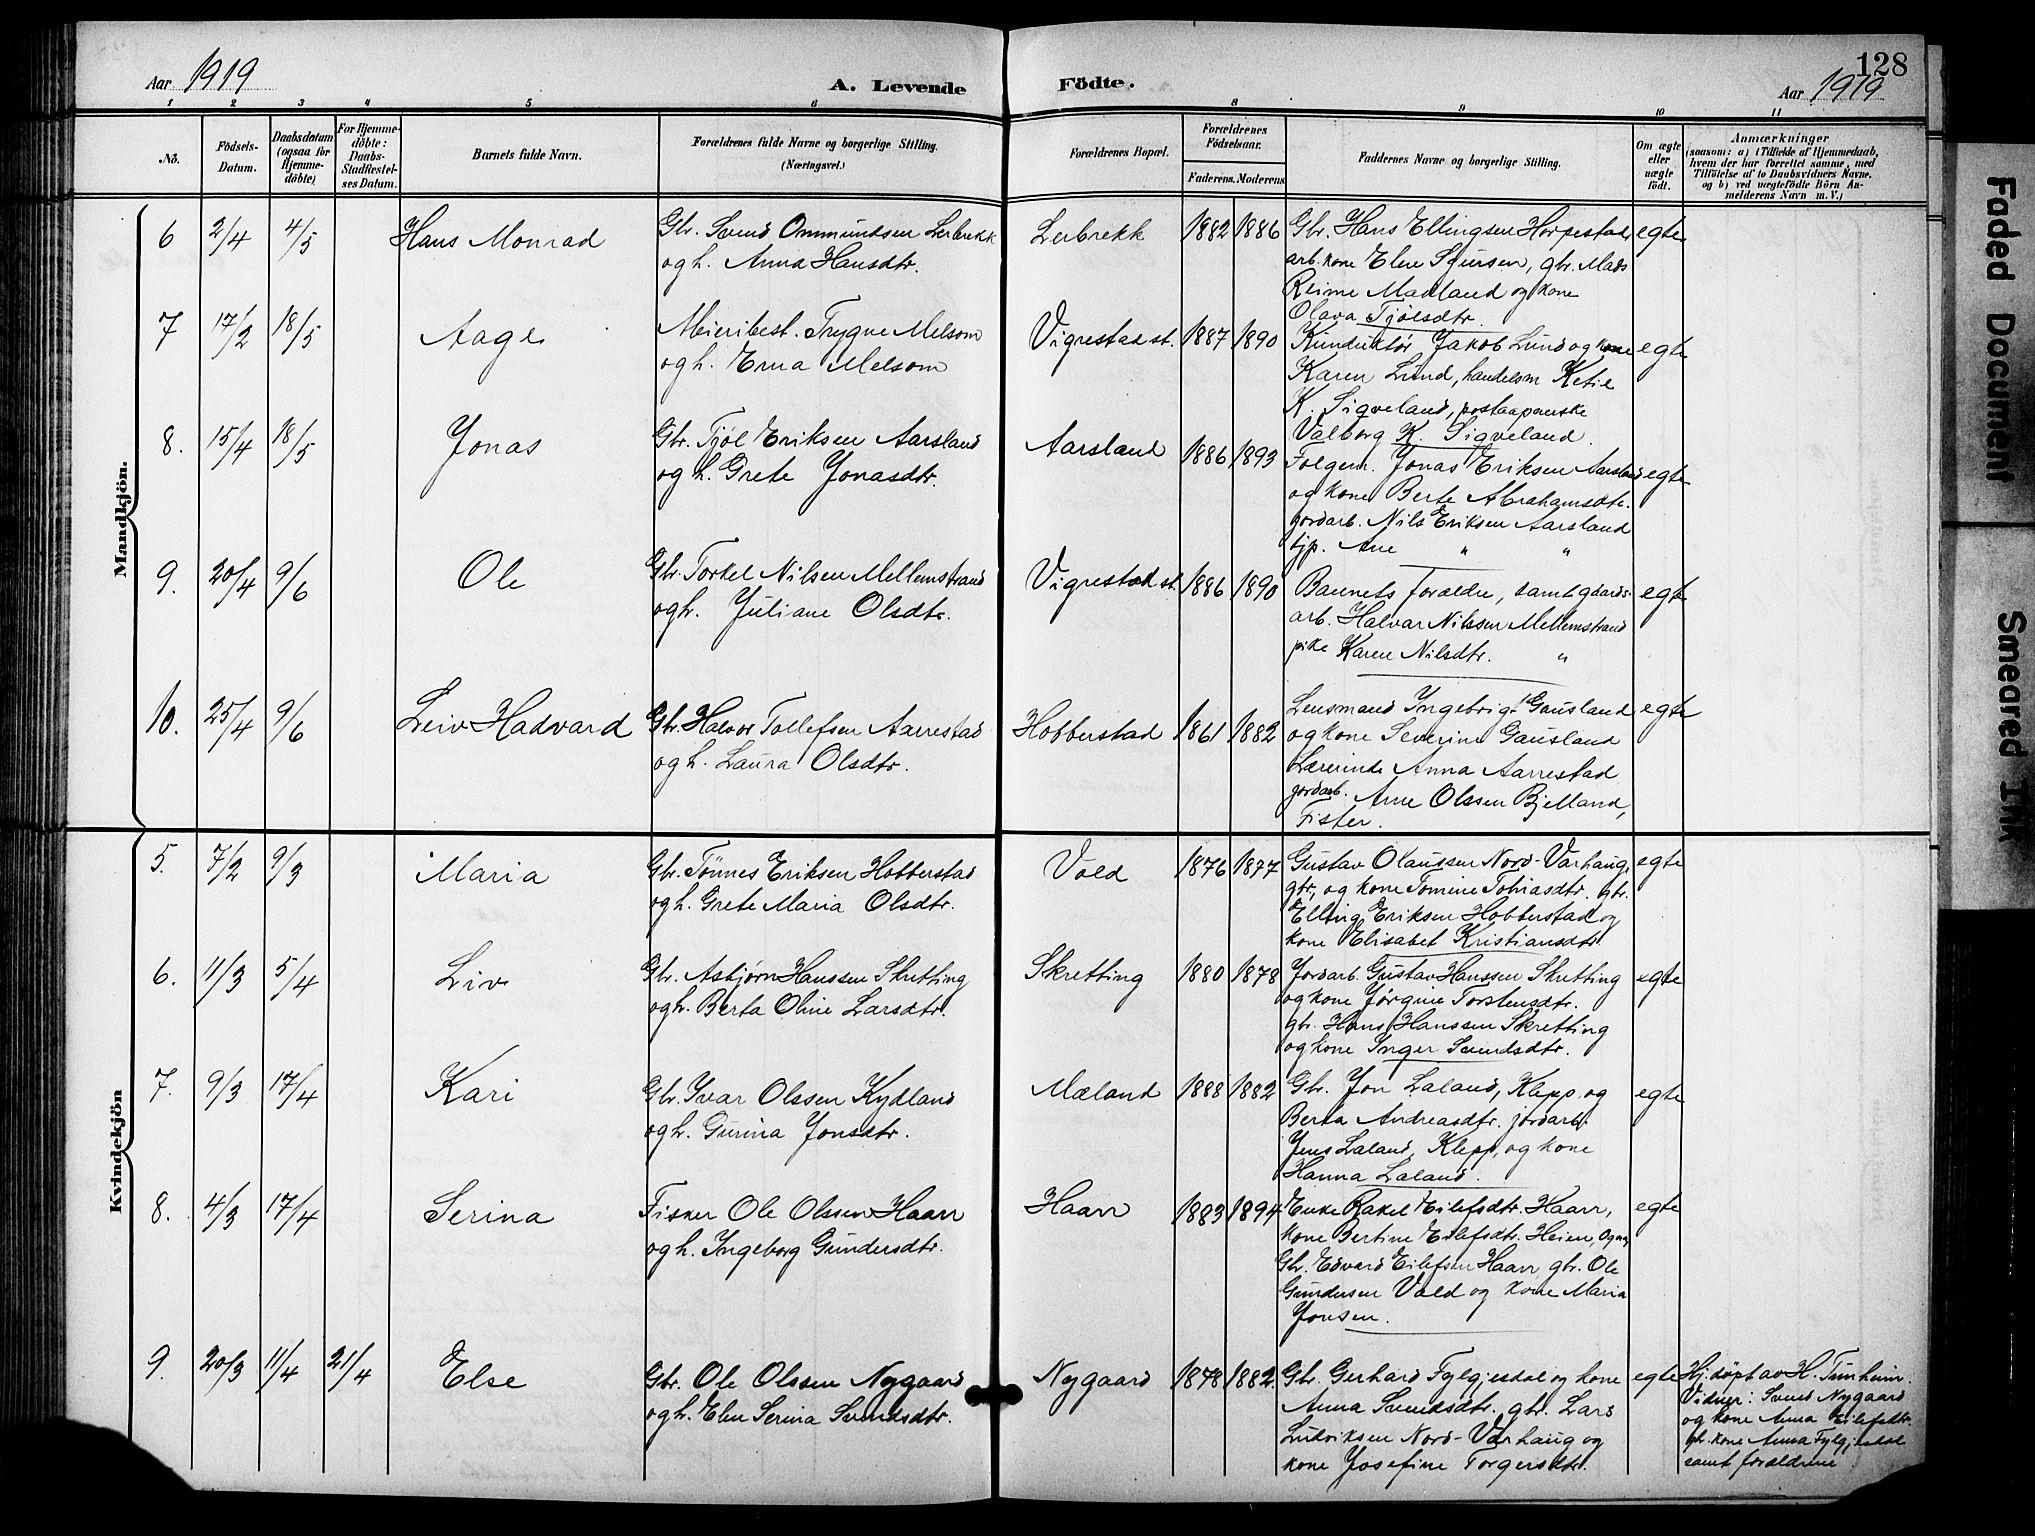 128
Aar 1919
A. Levende
Födte.
Aar 1919
1 2 3 4 5 6 8 9 10 11
No.
Födsels-
Datum.
Daabsdatum
(ogsaa for
Hjemme-
döbte)
For Hjemme-
döbte:
Daabs-
Stadfæstel-
ses Datum.
Barnets fulde Navn.
Forældrenes fulde Navne og borgerlige Stilling.
(Næringsvei.)
Forældrenes Bopæl.
Forældrenes
Födselsaar.
Faderens. Moderens
Faddernes Navne og borgerlige Stilling.
Om ægte
eller
uægte
födt.
Anmærkninger
(saasom: a) i Tilfælde af Hjemmedaab,
hvem der har forrettet samme, med
Tilföielse af to Daabsvidners Navne.
og b) ved uægtefödte Börn An-
melderens Navn m. V.)
Mandkjön.
6 2/4 4/5 Hans Monrad
Gbr. Svend Ommundsen Lerbrekk
og h. Anna Hansdtr.
Lerbrekk 1882 1886
Gbr. Hans Ellingsen Horpestad egte
arb. kone Elen Sjursen, gbr. Mads
Reime Madland og kone
Olava Tjølsdtr.
7 17/2 18/5 Aage
Meieribest. Trygve Melsom
og h. Erna Melsom
Vigrestad st. 1887 1890
Kunduktør Jakob Lund og kone egte
Karen Lund, handelsm Ketil
K. Sigveland, postaapnerske
Valborg K. Sigveland.
8. 15/4 18/5 Jonas
Gbr. Tjøl Eriksen Aarsland
og h. Grete Jonasdtr.
Aarsland 1886 1893
Folgem. Jonas Eriksen Aarsland egte
og kone Berte Abrahamsdtr.
gordarb. Nils Eriksen Aarsland
tjp. Ane " "
9. 20/4 9/6 Ole
Gbr. Torkel Nilsen Mellemstrand
og h. Juliane Olsdtr.
Vigrestad st. 1886 1890
Barnets forældre, samt gaards- egte
arb. Halvar Nilssen Mellemstrand
pike Karen Nilsdtr. "
10. 25/4 9/6 Leiv Hadvard
Gbr. Halvor Tollefsen Aarrestad
og h. Laura Olsdtr.
Hobberstad 1861 1882
Lensmand Ingebrigt Gausland egte
og kone Severine Gausland
Lærerinde Anna Aarrestad
gordarb. Arne Olssen Bjelland,
Fister.
Kvindekjön
5. 7/2 9/3 Maria
Gbr. Tönnes Eriksen Hobberstad
og h. Grete Maria Olsdtr.
Vold 1876 1877
Gustav Olaussen Nord-Varhaug, egte
gbr., og kone Tomine Tobiasdtr. gbr.
Elling Eriksen Hobberstad og
kone Elisabet Kristiansdtr
6. 11/3 5/4 Liv
Gbr. Asbjørn Hanssen Skretting
og h. Berta Oline Larsdtr.
Skretting 1880 1878
Jordarb. Gustav Hanssen Skretting egte
og kone Jørgine Torstensdtr.
gbr. Hans Hanssen Skretting
og kone Inger Svendsdtr.
7. 9/3 17/4 Kari
Gbr. Ivar Olssen Kydland
og h. Gurina Jonsdtr.
Mæland 1888 1882
Gbr. Jon Laland, Klepp og egte
Berta Andreasdtr. jordarb.
Jens Laland, Klepp, og kone
Hanna Laland.
8. 4/3 17/4 Serina
Fisker Ole Olssen Haarr
og h. Ingeborg Gundersdtr.
Haarr 1883 1894
Enke Rakel Eilefsdtr. Haarr, egte
kone Bertine Eilefsdtr. Heien, Ogna,
Gbr. Edvard Eilefsen Haarr, gbr. Ole
Gundersen Vold og kone Maria
Jonsen.
9. 20/3 11/4 21/4 Else
Gbr. Ole Olssen Nygaard
og h. Elen Serina Svendsdtr.
Nygaard 1878 1882.
Gbr. Gerhard Fylgjesdal og kone egte
Anna Svendsdtr. gbr. Lars
Ludviksen Nord-Varhaug og
kone Josefine Torgersdtr.
Hj. døpt av H. Tunheim.
Vidner: Svend Nygaard
og kone Anna Eilefsdtr.
gb. kone Anna Fylgjesdal
samt forældrene
Faded Document
Smeared Ink